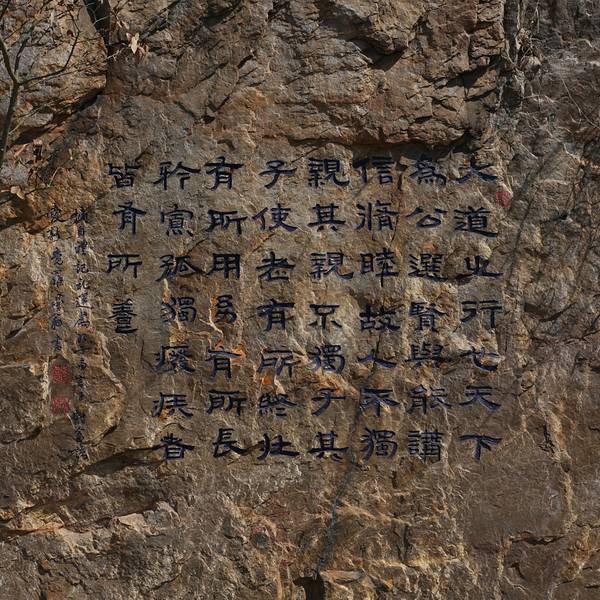 大道之行也天下
為公選賢與能講
信脩睦故人不獨
親其親不獨子其
子使老有所終壯
有所用幼有所長
矜寡孤獨癈疾者
皆有所養